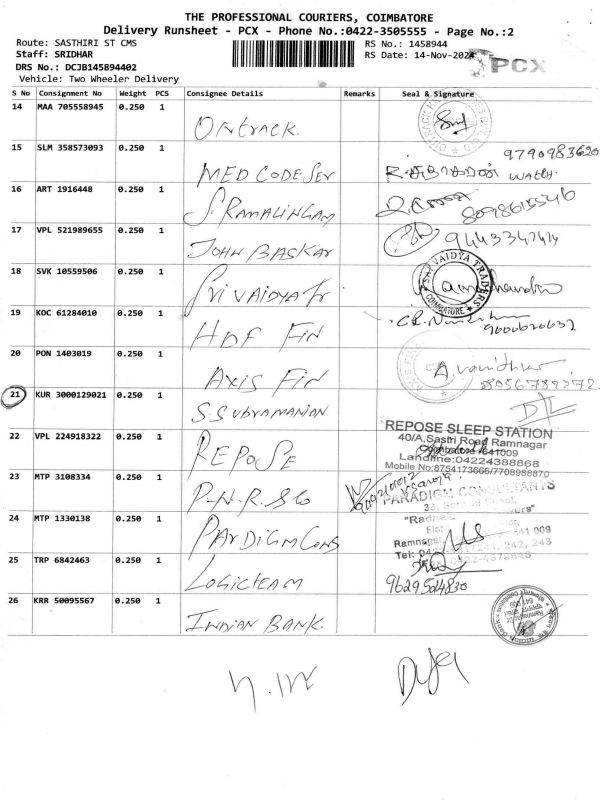 THE PROFESSIONAL COURIERS, COIMBATORE
Delivery Runsheet - PCX - Phone No.:0422-3505555 - Page No.:2
Route: SASTHIRI ST CMS
RS No.: 1458944
Staff: SRIDHAR
RS Date: 14-Nov-2024
PCX
DRS No.: DCJB145894402
Vehicle: Two Wheeler Delivery
S No Consignment No Weight PCS Consignee Details Remarks Seal & Signature
14 MAA 705558945 0.250 1 ONTRACK.
15 SLM 358573093 0.250 1 MEDCODESER
9790983620
16 ART 1916448 0.250 1 S. RAMALINGAM
17 VPL 521989655 0.250 1 JOHN BASKAR
18 SVK 10559506 0.250 1 SRI VAIDYA Tr
SRI VAIDYA TRADERS COIMBATORE
19 KOC 61284010 0.250 1 HDF FIN
20 PON 1403019 0.250 1 AXIS FIN
21 KUR 3000129021 0.250 1 S SUBRAMANIAN
22 VPL 224918322 0.250 1 REPOSE
REPOSE SLEEP STATION
40/A, Sastri Road Ramnagar
Coimbatore 641009
Landline:04224388868
Mobile No:8754173666/7708988870
23 MTP 3108334 0.250 1 P-N.R.S Co
PARADIGM CONSULTANTS
24 MTP 1330138 0.250 1 PARDIGM CONS
Ramnagar
641 009
242, 243
25 TRP 6842463 0.250 1 LOGICTEAM
9629524830
26 KRR 50095567 0.250 1 INDIAN BANK.